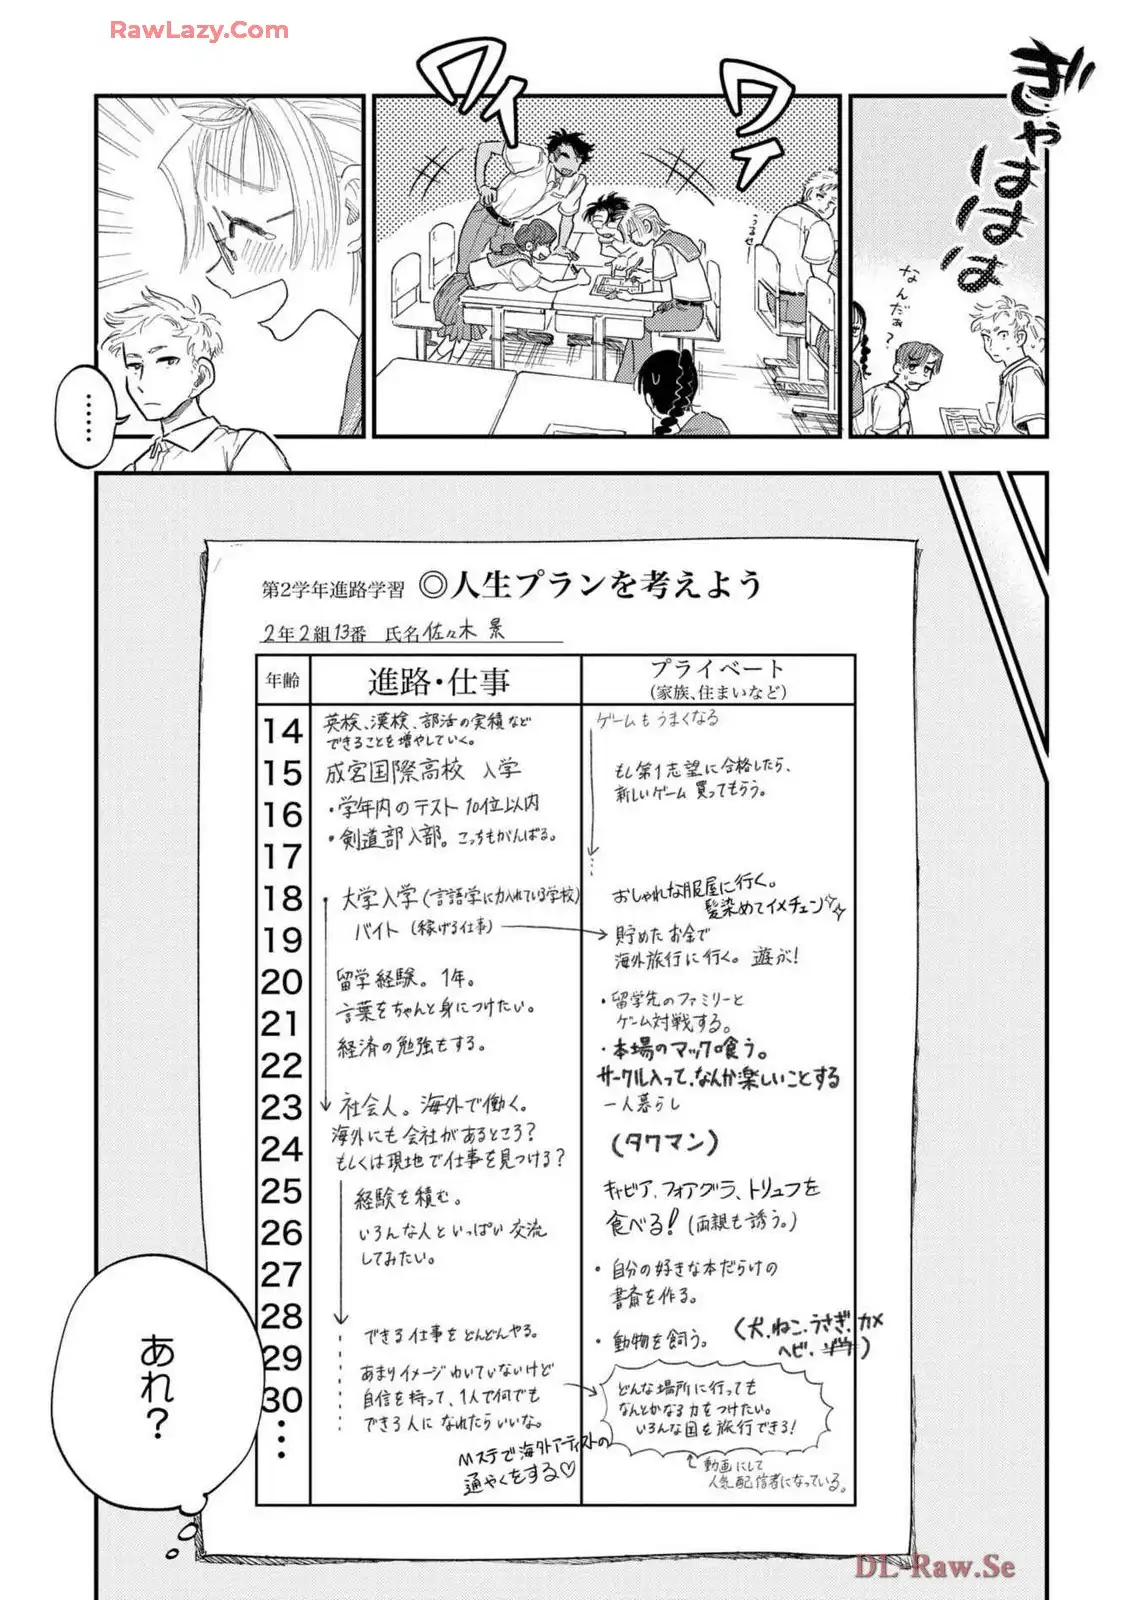 RawLazy.Com
ぎゃははは
なんだぁ?
ワイ
ワイ
うるせ
……
第2学年進路学習 ◎人生プランを考えよう
2年2組13番 氏名 佐々木 景
年齢
進路・仕事
プライベート
(家族、住まいなど)
14
15
16
17
18
19
20
21
22
23
24
25
26
27
28
29
30
⋮
英検、漢検、部活の実績など
できることを増やしていく。
成宮国際高校 入学
・学年内のテスト 10位以内
・剣道部入部。こっちもがんばる。
大学入学(言語学に力入れている学校)
バイト(稼げる仕事)
留学経験。1年。
言葉をちゃんと身につけたい。
経済の勉強もする。
社会人。海外で働く。
海外にも会社があるところ?
もしくは現地で仕事を見つける?
経験を積む。
いろんな人といっぱい交流
してみたい。
できる仕事をどんどんやる。
あまりイメージわいていないけど
自信を持って、1人で何でも
できる人になれたらいいな。
Mステで海外アーティストの
通やくをする♡
ゲームもうまくなる
もし第1志望に合格したら、
新しいゲーム買ってもらう。
おしゃれな服屋に行く。
髪染めてイメチェン☆☆
貯めたお金で
海外旅行に行く。遊ぶ!
・留学先のファミリーと
ゲーム対戦する。
・本場のマック喰う。
サークル入って、なんか楽しいことする
一人暮らし
(タワマン)
キャビア、フォアグラ、トリュフを
食べる!(両親も誘う。)
・自分の好きな本だらけの
書斎を作る。
・動物を飼う。
(犬、ねこ、うさぎ、カメ
ヘビ、ゾウ)
どんな場所に行っても
なんとかなる力をつけたい。
いろんな国を旅行できる!
動画にして
人気配信者になっている。
あれ?
DL-Raw.Se